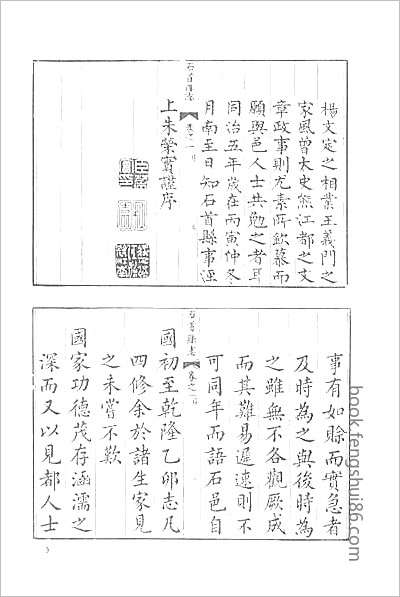 楊文定之相業王義門之
家風曾太史熊江都之文
章政事則尤素所欽慕而
願與邑人士共勉之者耳
同治五年歲在丙寅仲冬
月南至日知石首縣事涇
上朱榮實謹序
石首縣志
卷之一
事有如賒而實急者
及時為之與後時為
之雖無不各觀厥成
而其難易遲速則不
可同年而語石邑自
石首縣志
卷之一
國初至乾隆乙卯志凡
四修余於諸生家見
之未嘗不歎
國家功德茂存涵濡之
深而又以見都人士
book.fengshui86.com